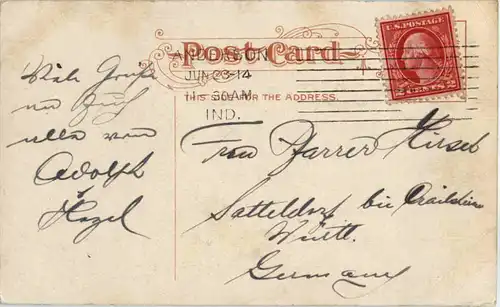 Post Card
U.S. POSTAGE
2 CENTS 2
ANDERSON
JUN 23-14
11 30AM
IND.
THIS SIDE FOR THE ADDRESS.
Viele Grüße
an Euch
alle von
Adolph
Hezel
Frau Pfarrer Hirsch
Satteldorf bei Crailsheim
Württ.
Germany